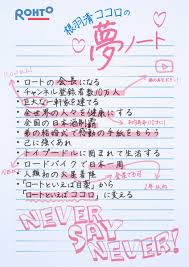 ROHTO
根羽清ココロの
夢ノート
・ロートの会長になる
・チャンネル登録者数10万人
・巨大な一財を建てる
・全世界の人々を健康にする
・全国の日本酒制覇
・弟の結婚式で感動の手紙をもらう
・己に強くあれ
・トイプードルに囲まれて生活する
・ロードバイクで日本一周
・人類初の火星着陸
・「ロートといえば目薬」から
「ロートといえばココロ」に変える
NEVER
SAY
NEVER!